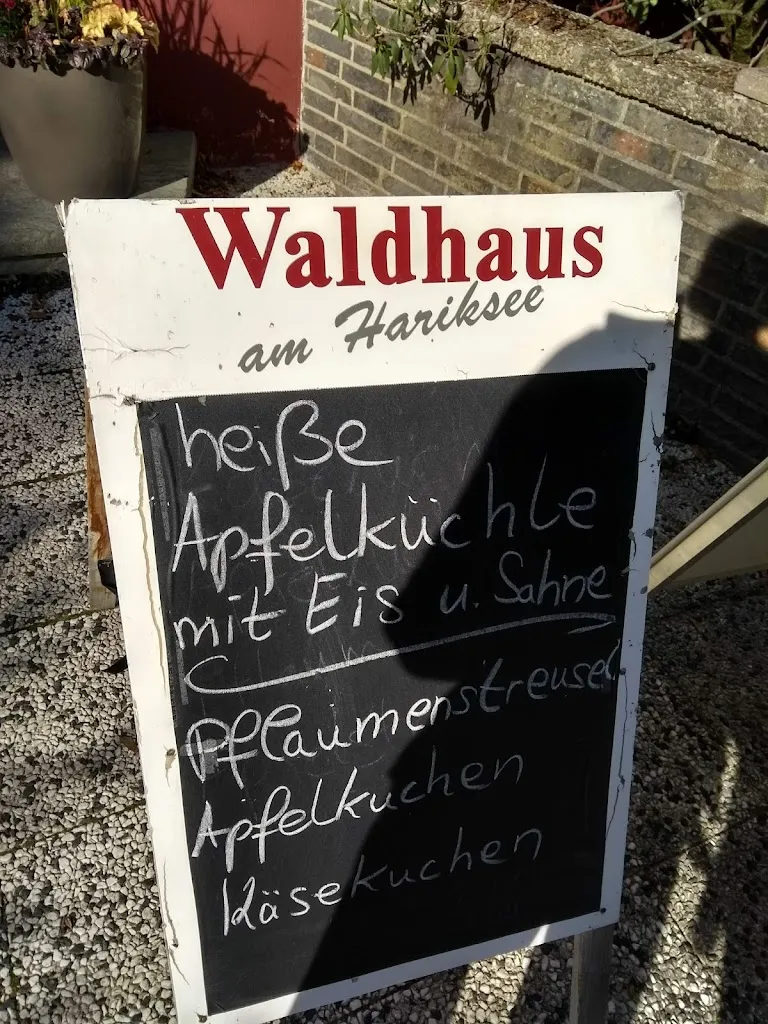 Waldhaus
am Hariksee
heiße
Apfelküchle
mit Eis u. Sahne
Pflaumenstreusel
Apfelkuchen
Käsekuchen